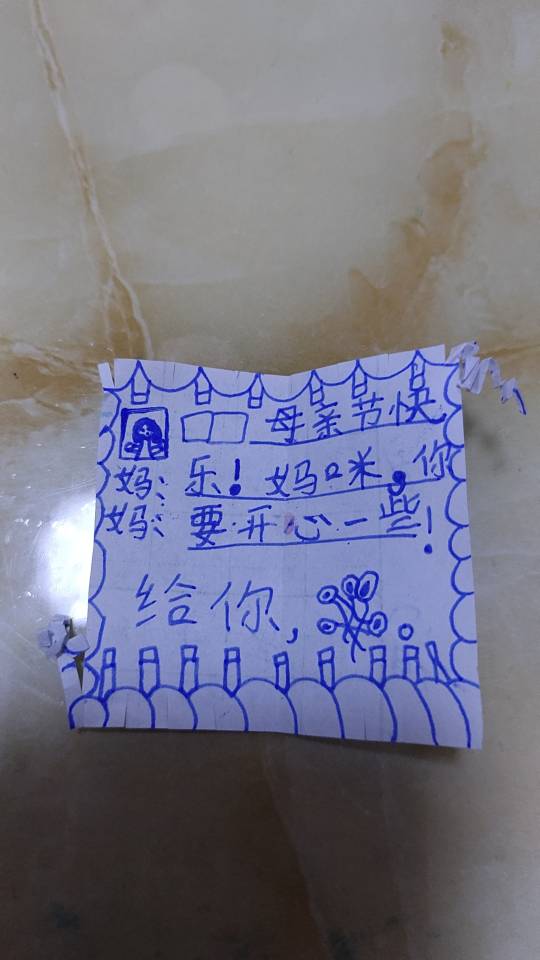 母亲节快
妈：乐！妈咪，你
妈：要开心一些！
给你，